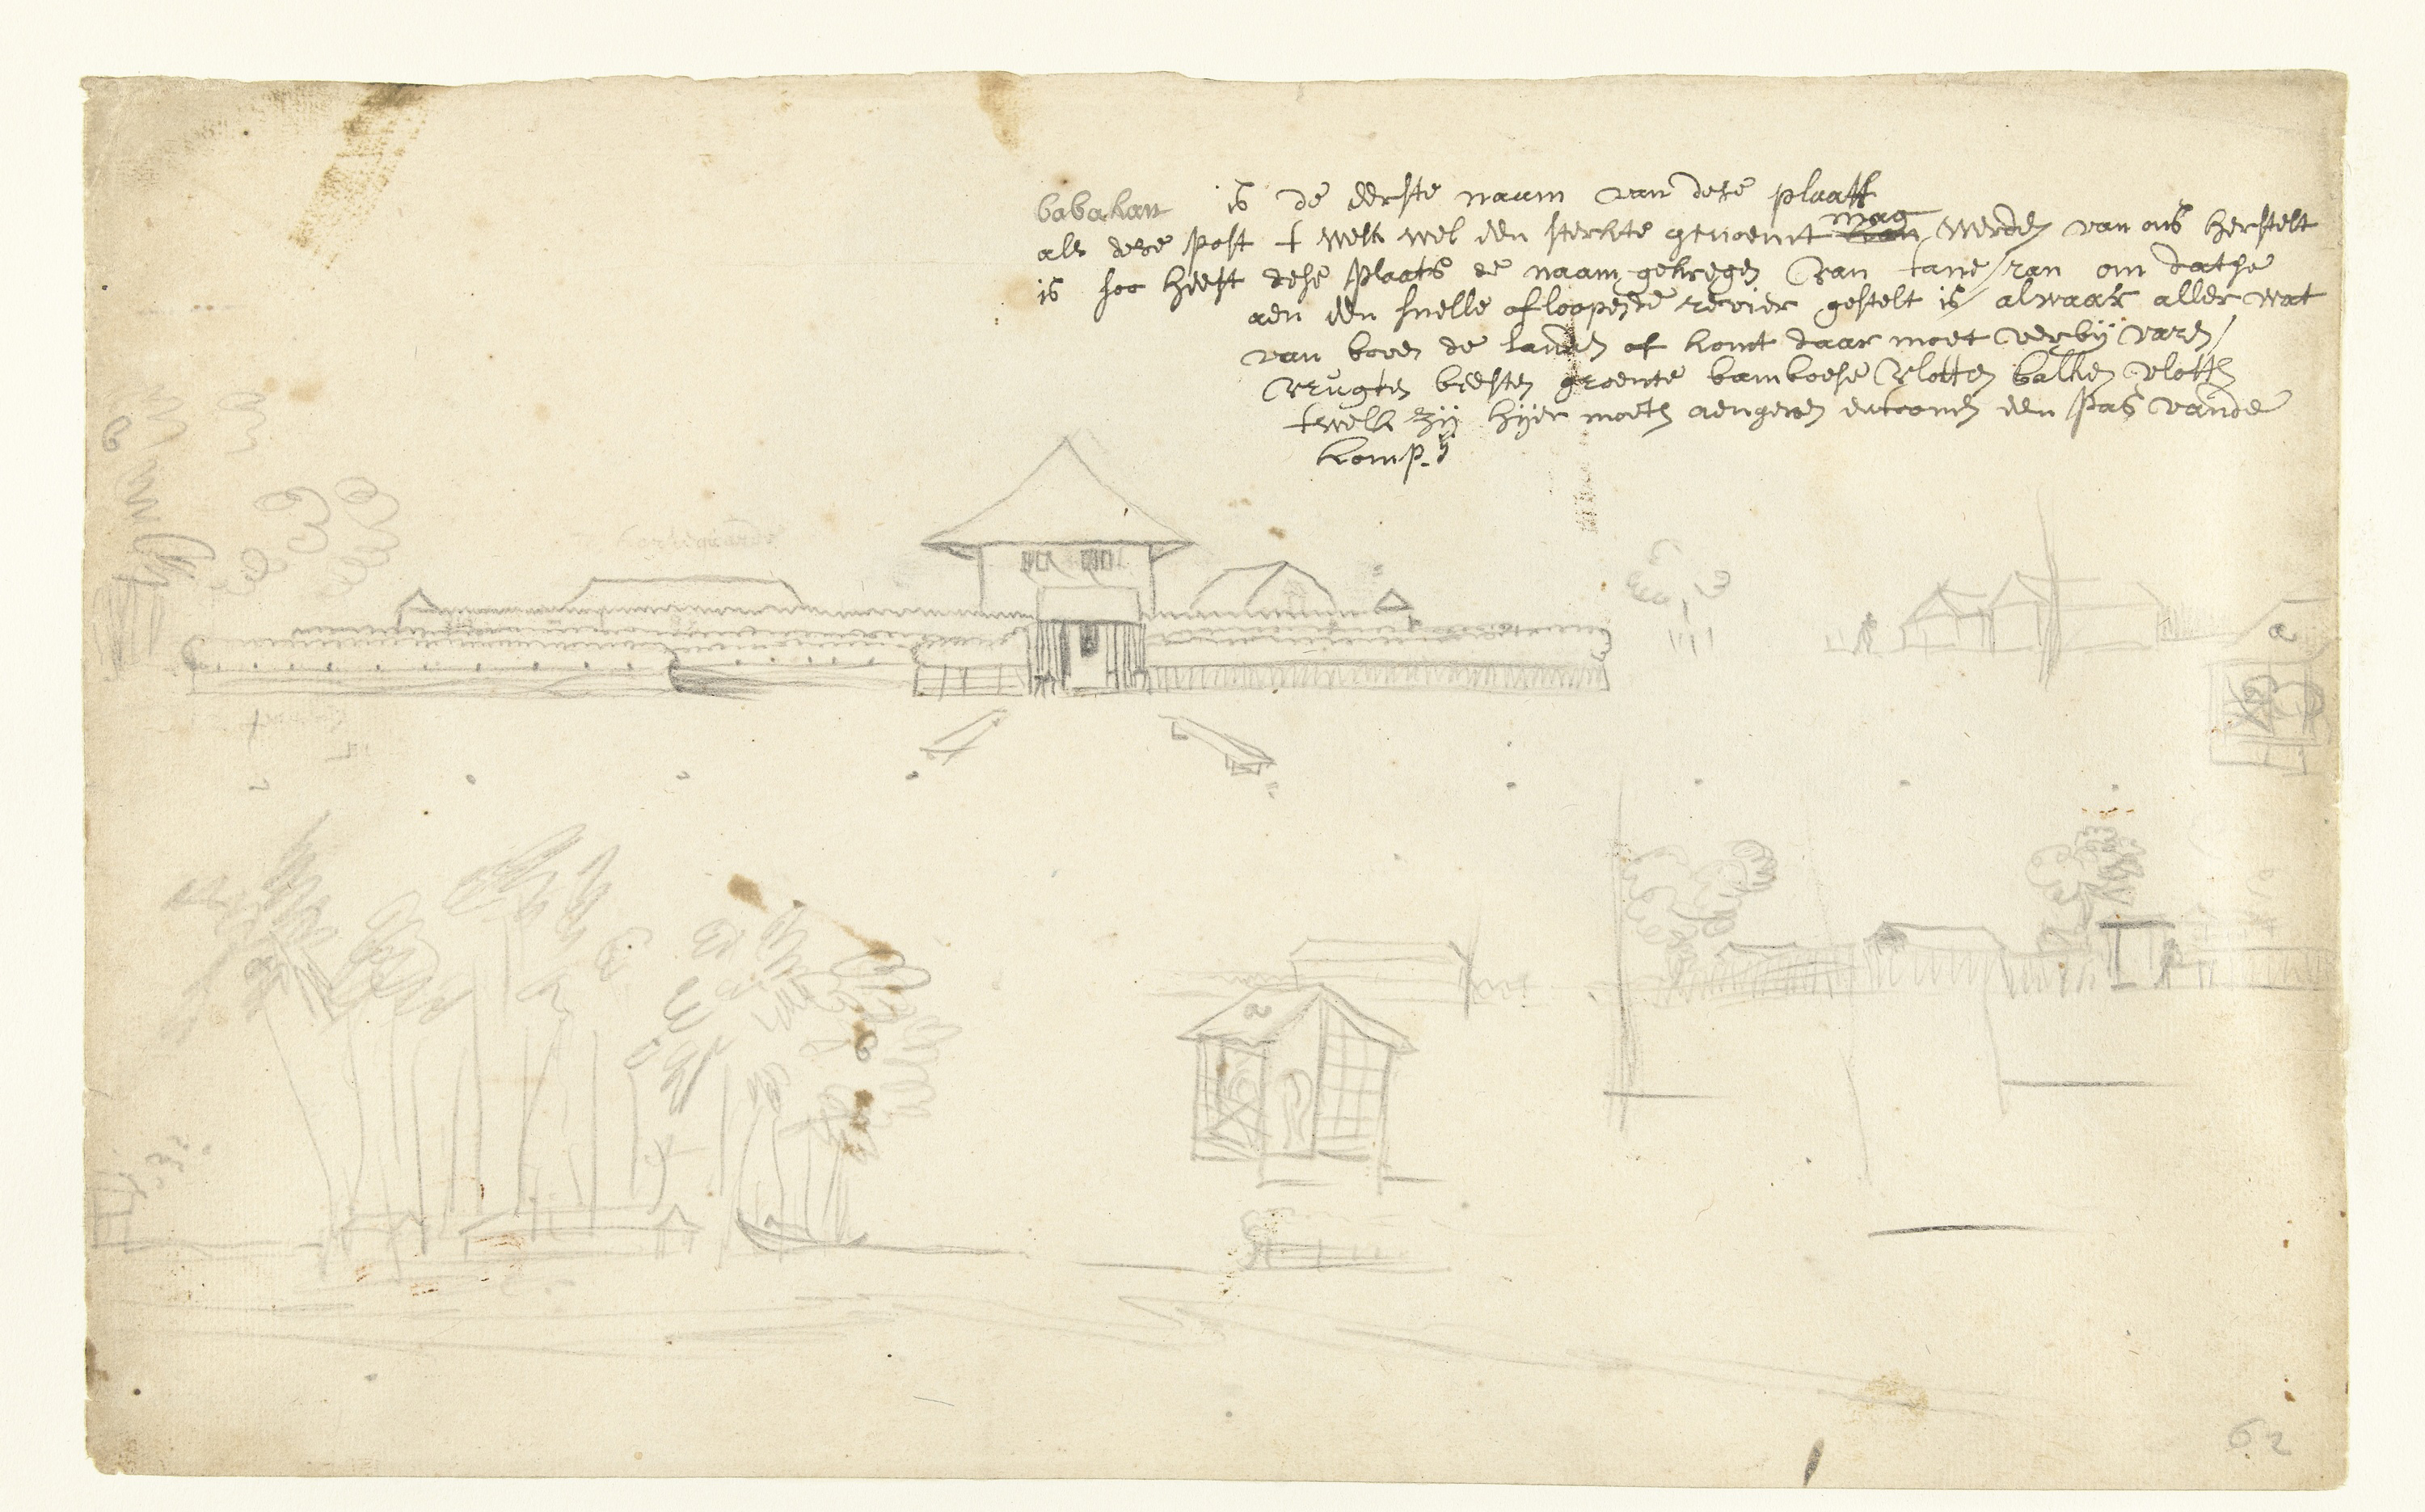 babakan is de eerste naam van dese plaats
als dese post t welk wel een sterkte genoemt mag werden van ons herstelt
is soo heeft dese plaats de naam gekregen van tangeran om datse
aen een snelle afloopende revier gestelt is alwaar aller wat
van boven de landen af komt daar moet verbij varen
vrugten beesten groente bamboese vlotten balken vlotten
twelk zij hijer moeten aengeven en toonen een pas vande
komp.ij
a
a
6
62